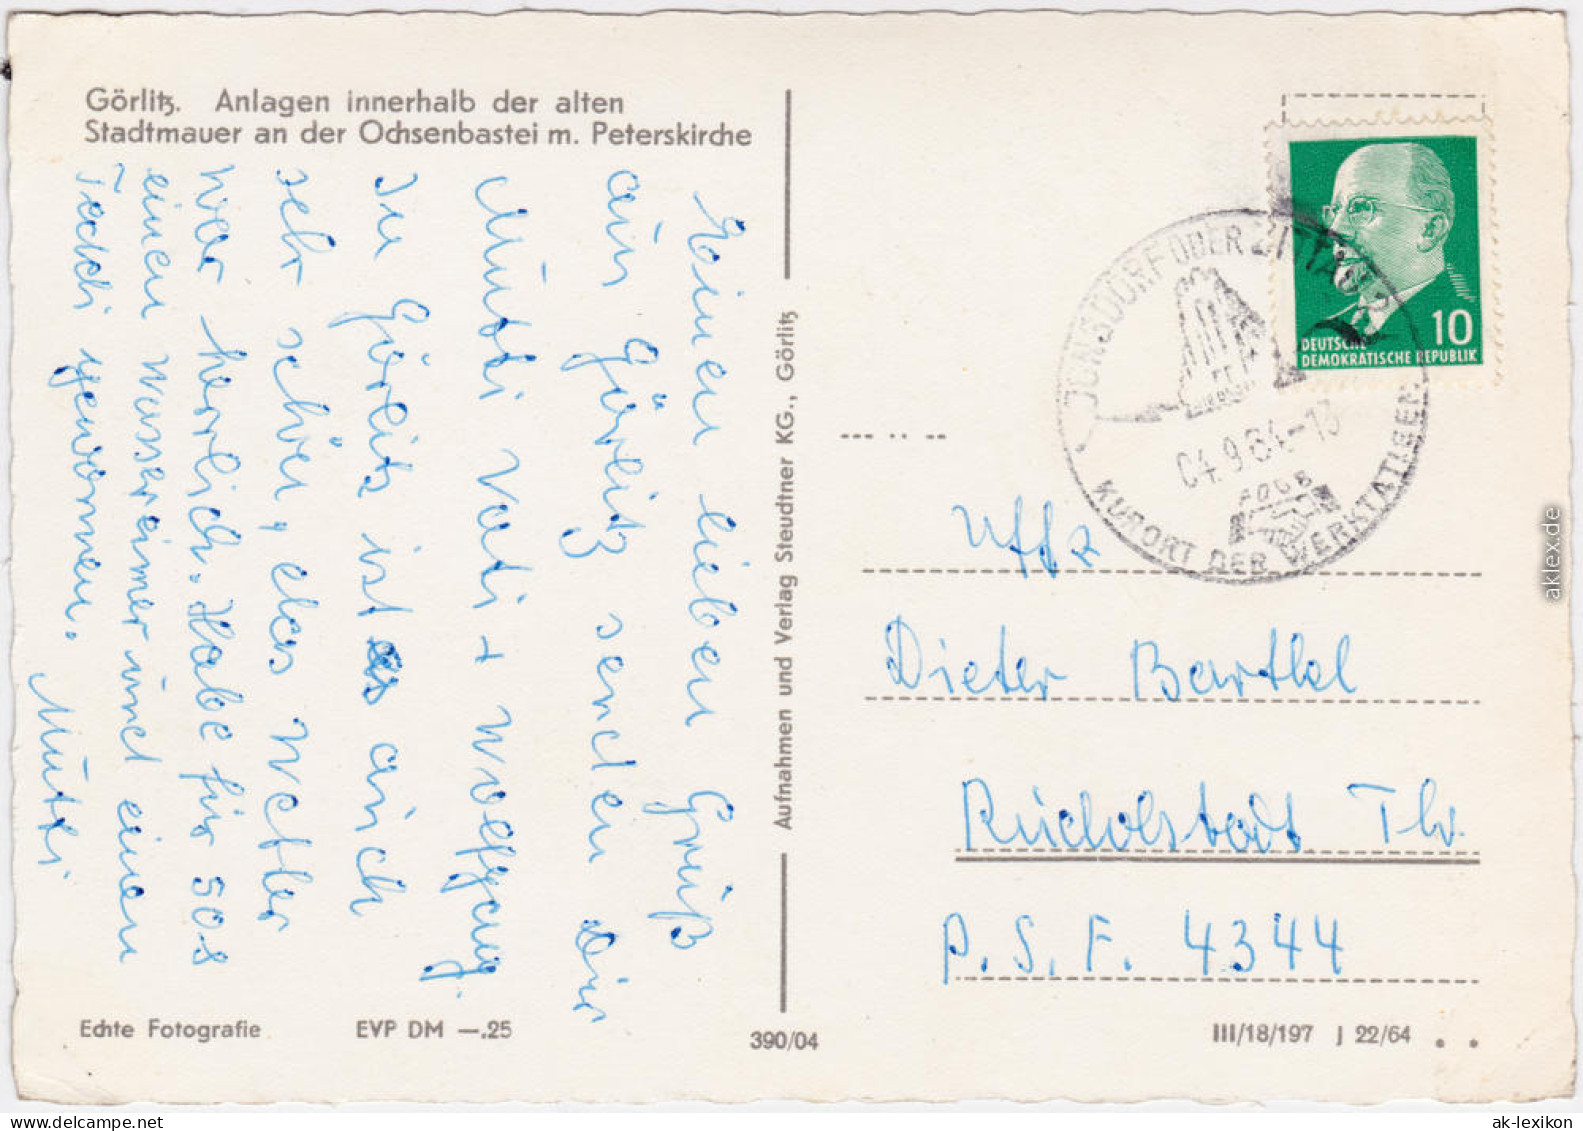 Görlitz. Anlagen innerhalb der alten
Stadtmauer an der Ochsenbastei m. Peterskirche
Einen lieben Gruß
aus Görlitz senden Dir
Mutti Vati + Wolfgang.
In Görlitz ist es auch
sehr schön, das Wetter
war herrlich. Habe für 50 ₰
einen Wassereimer und einen
Teddi gewonnen.
Mutti
Aufnahmen und Verlag Steudtner KG., Görlitz
DEUTSCHE
DEMOKRATISCHE REPUBLIK
10
JONSDORF ÜBER ZITTAU 2
04.9.64-13
FDGB
KURORT DER WERKTÄTIGEN
Uffz
Dieter Barthel
Rudolstadt Th.
P.S.F. 4344
Echte Fotografie EVP DM —.25
390/04
III/18/197 J 22/64
aklex.de
ak-lexikon